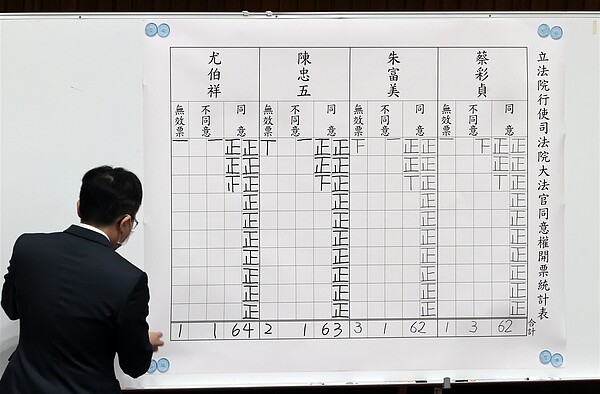 立法院行使司法院大法官同意權開票統計表
合計
蔡彩貞
同意
正正正正正正正正正正
正正丅
62
不同意
下
3
無效票
一
1
朱富美
同意
正正正正正正正正正正
正正丅
62
不同意
一
1
無效票
下
3
陳忠五
同意
正正正正正正正正正正
正正下
63
不同意
一
1
無效票
丅
2
尤伯祥
同意
正正正正正正正正正正
正正止
64
不同意
一
1
無效票
一
1